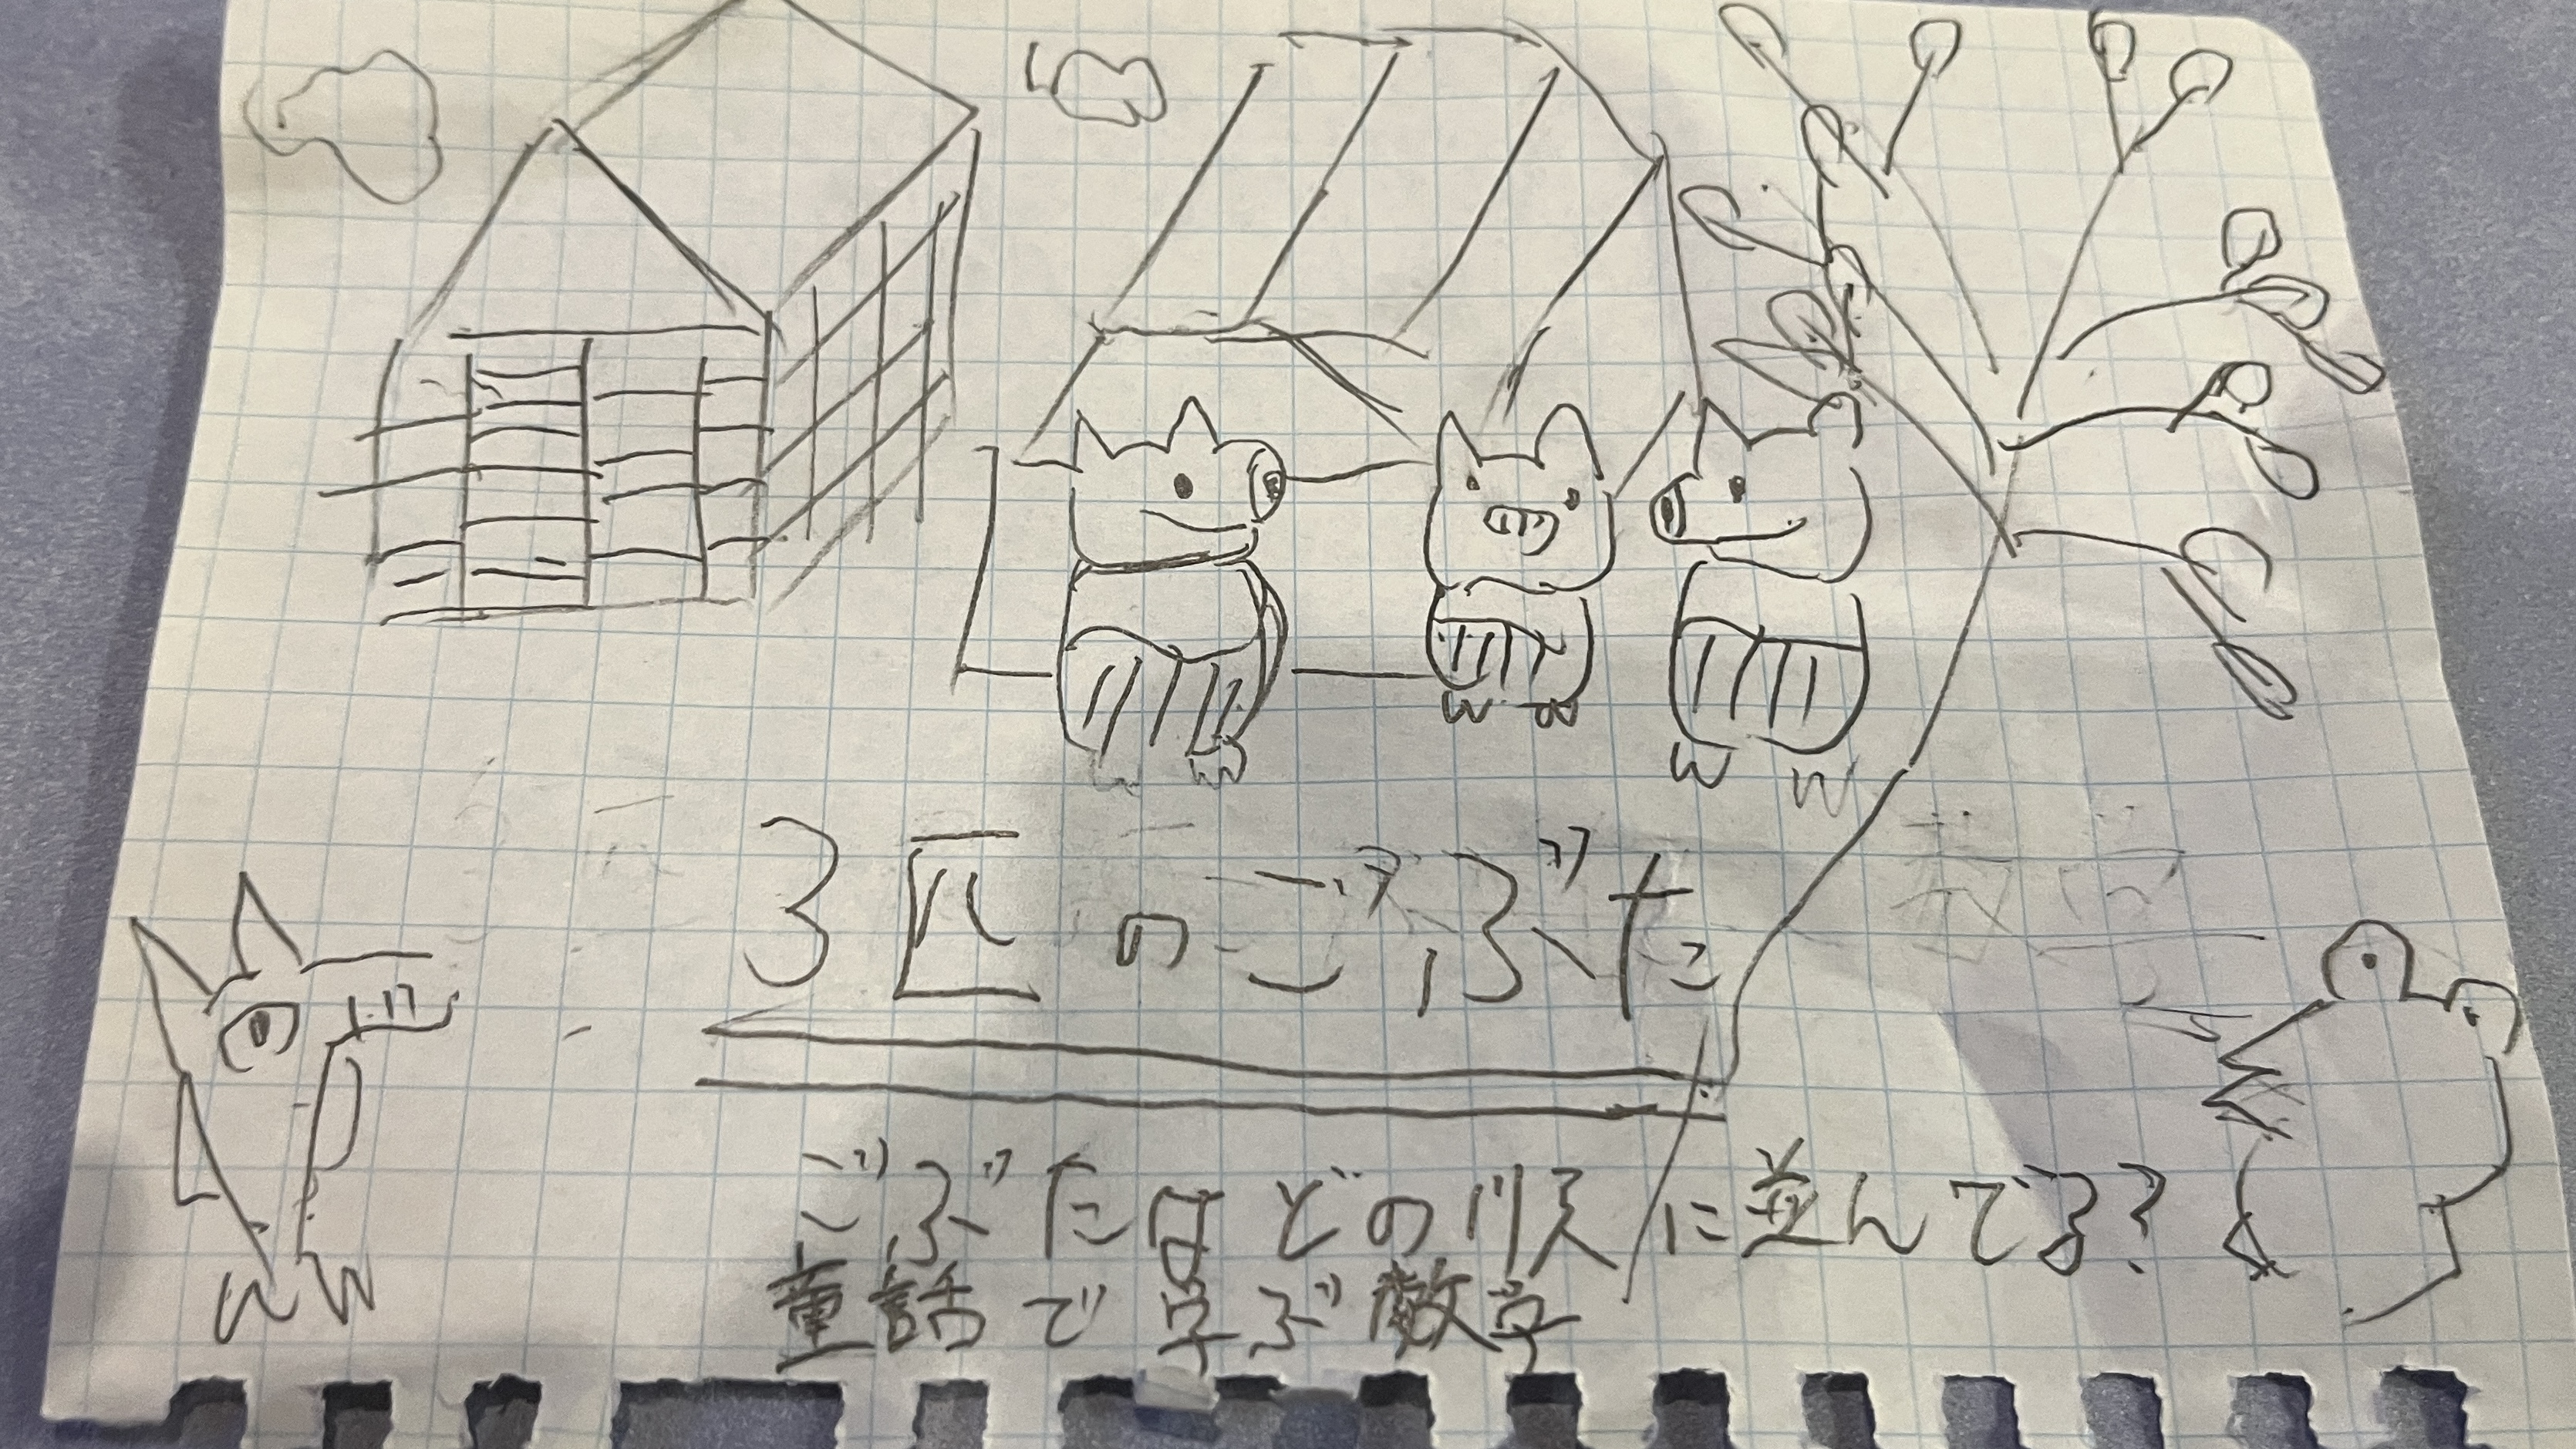 3匹のごぶた
ごぶたはどの順に並んでる?
童話で学ぶ数学